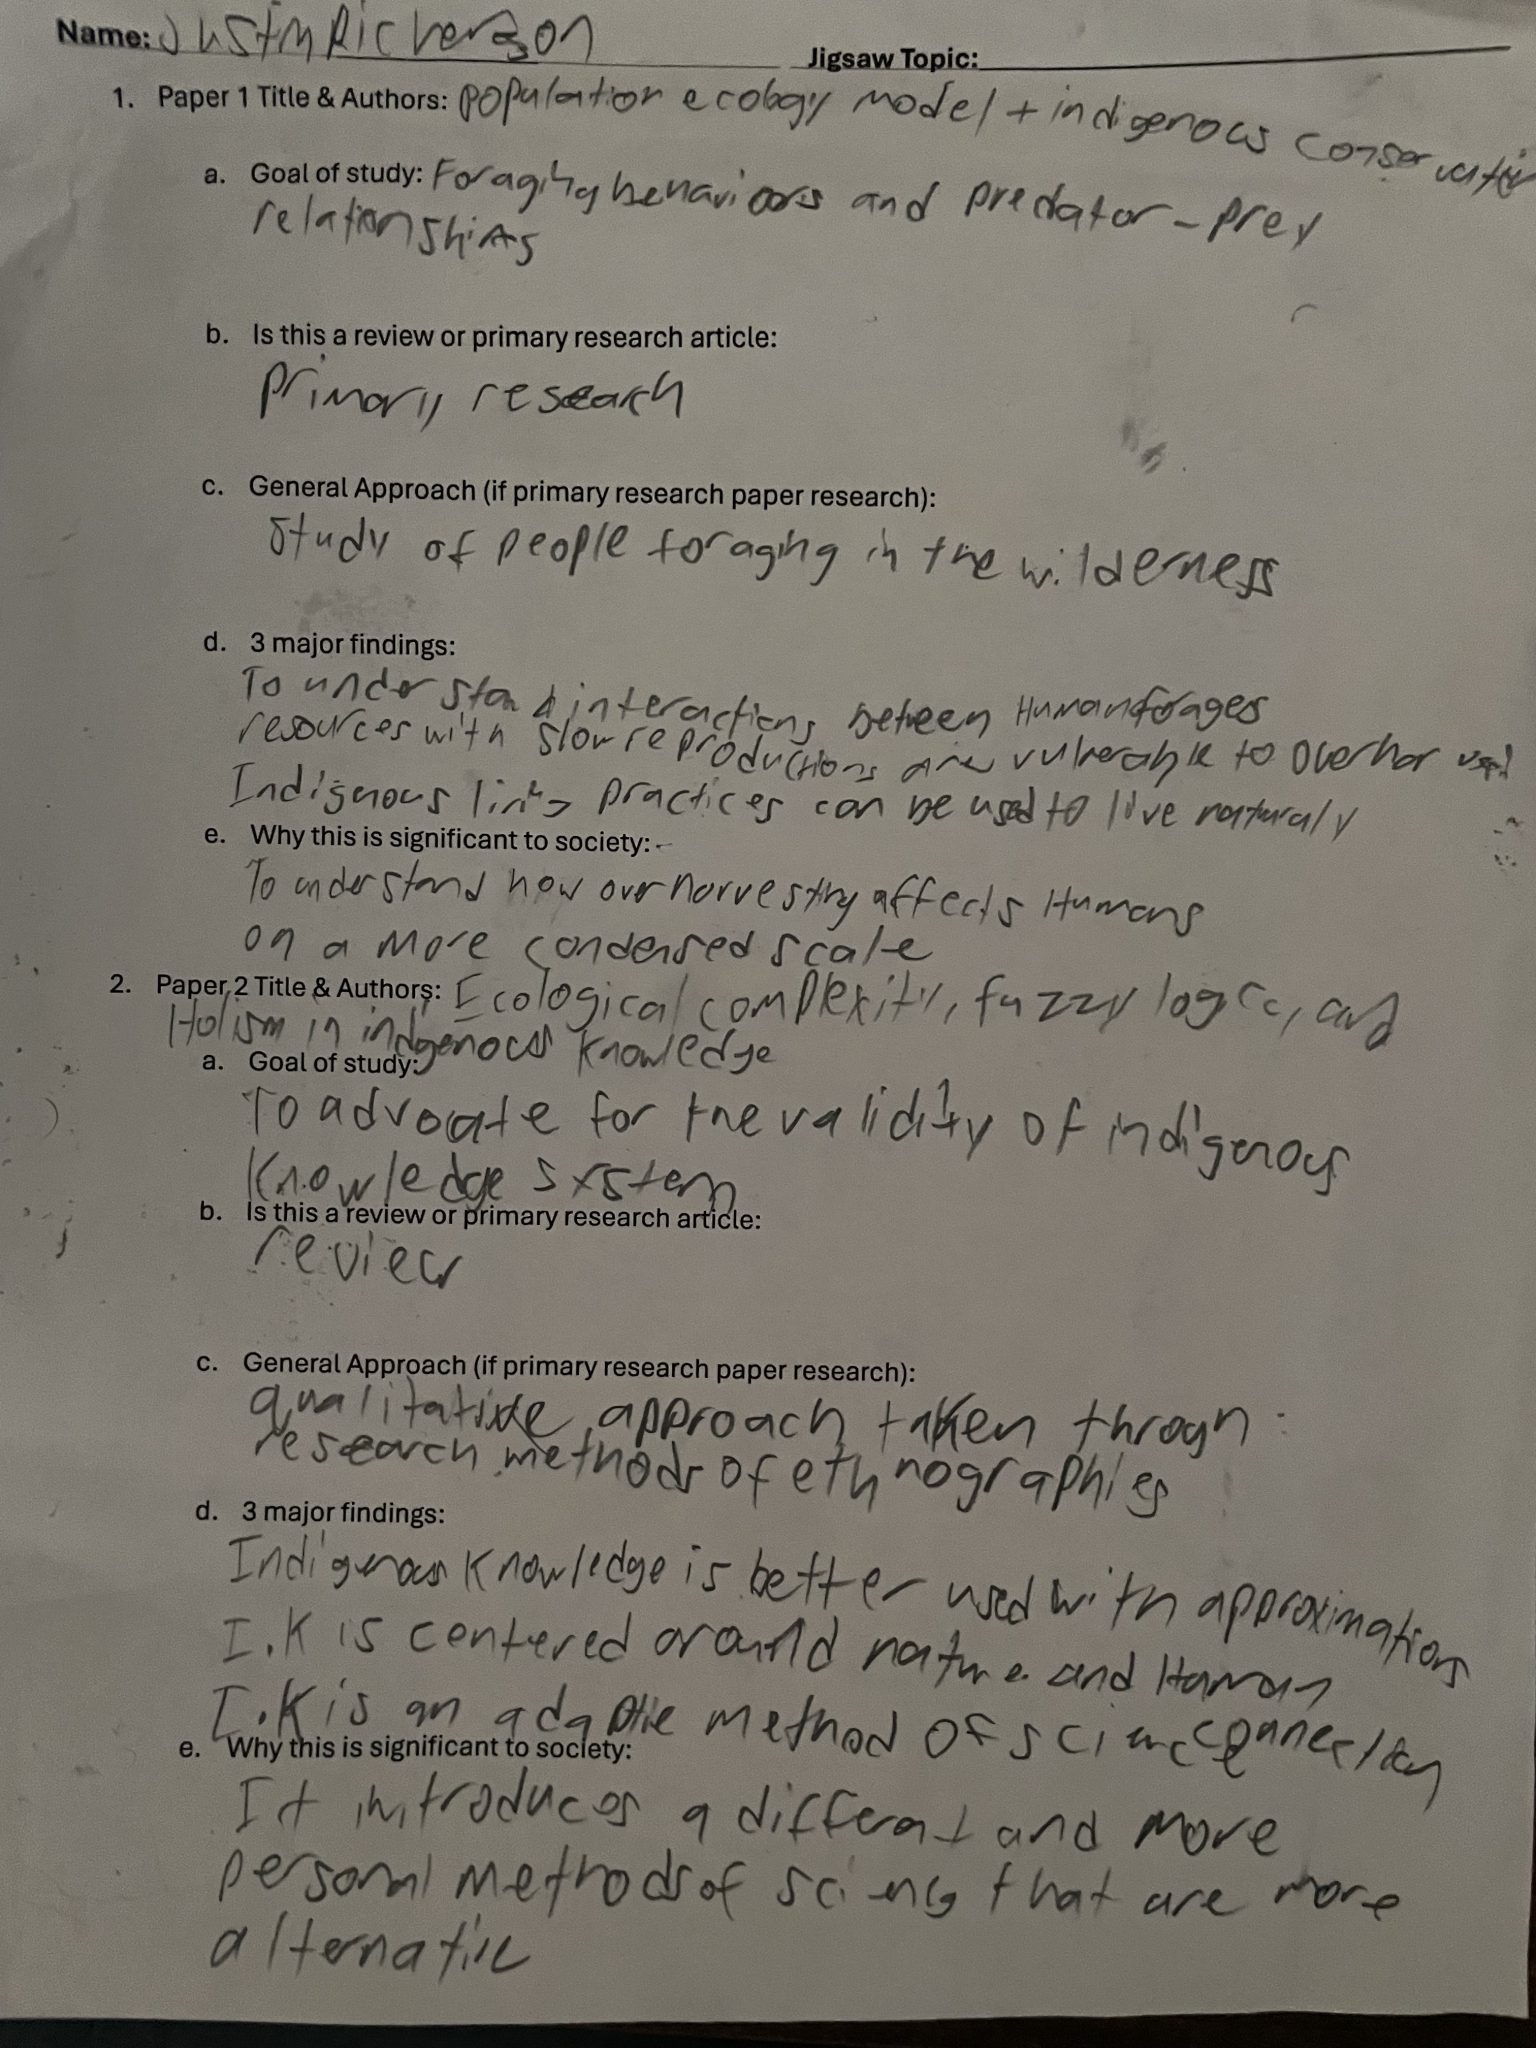 Name: Justin Richerson
Jigsaw Topic:
1. Paper 1 Title & Authors: Population ecology model + indigenous conservation
a. Goal of study: Foraging behaviors and predator-prey
relationships
b. Is this a review or primary research article:
Primary research
c. General Approach (if primary research paper research):
Study of people foraging in the wilderness
d. 3 major findings:
To understand interactions between Human forages
resources with slow reproductions are vulnerable to overharvest
Indigenous living practices can be used to live naturaly
e. Why this is significant to society:
To understand how overharvesting affects Humans
on a more condensed scale
2. Paper 2 Title & Authors: Ecological complexity, fuzzy logic, and
Holism in indgenous knowledge
a. Goal of study:
To advocate for the validity of indigenous
knowledge system
b. Is this a review or primary research article:
review
c. General Approach (if primary research paper research):
qualitative approach taken throgh
research methods of ethnographies
d. 3 major findings:
Indigenous Knowledge is better used with approximations
I.K is centered around nature and Human
I.K is an adaptive method of science connection
e. Why this is significant to society:
It introduces a different and more
personal methods of science that are more
alternative